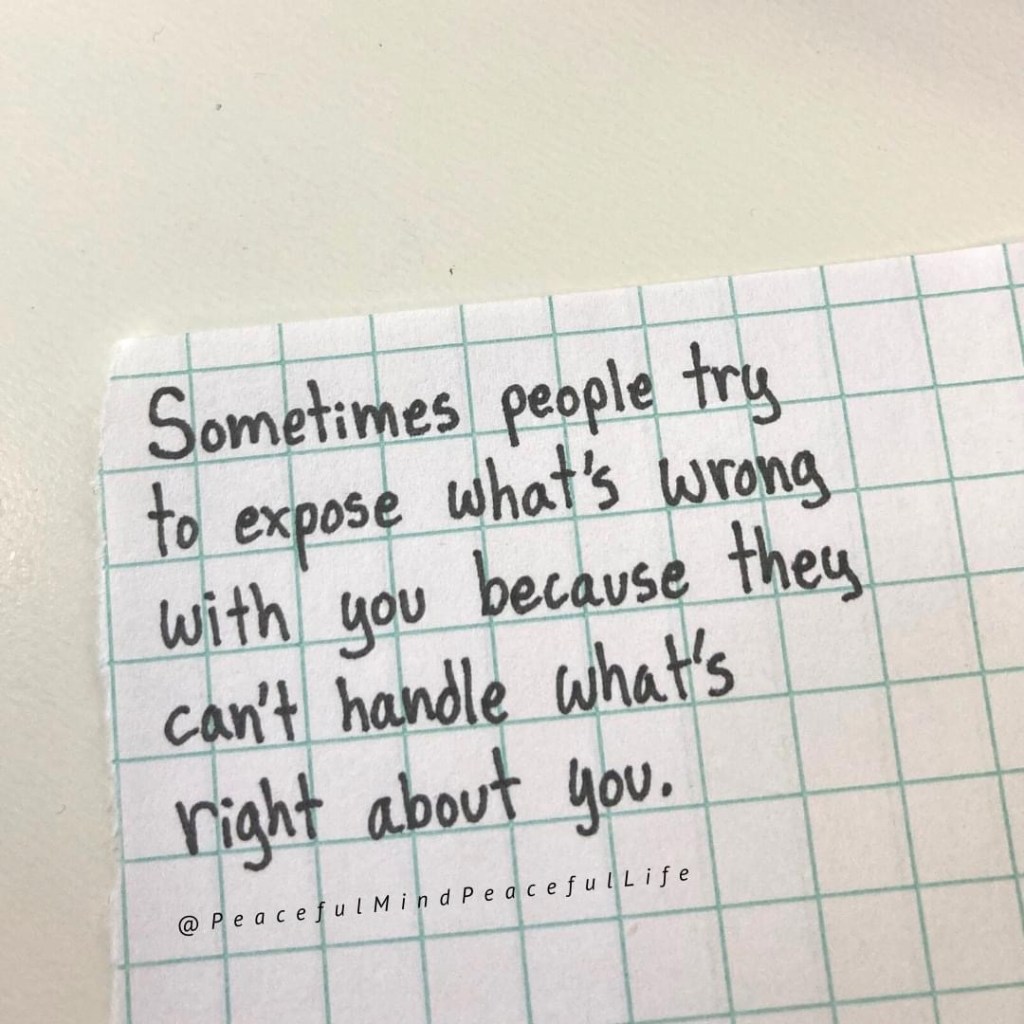 Sometimes people try
to expose what's wrong
with you because they
can't handle what's
right about you.
@PeacefulMindPeacefulLife